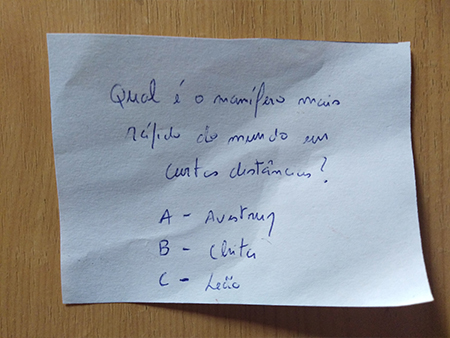 Qual é o mamífero mais
rápido do mundo em
curtas distâncias?
A - Avestruz
B - Chita
C - Leão